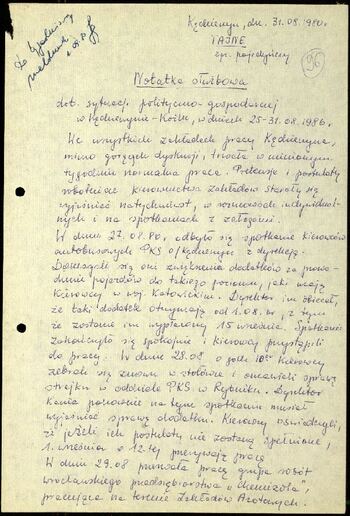 Kędzierzyn, dn. 31.08.1980r.
TAJNE
egz. pojedynczy
96
Do tygodniowego
meldunku
Notatka służbowa
dot. sytuacji polityczno-gospodarczej
w Kędzierzynie-Koźlu, w dniach 25-31.08.1980.
We wszystkich zakładach pracy Kędzierzyna,
mimo gorących dyskusji, trwała w minionym
tygodniu normalna praca. Pretensje i postulaty
robotnicze kierownictwa zakładów starały się
wyjaśniać natychmiast, w rozmowach indywidual-
nych i na spotkaniach z załogami.
W dniu 27.08.80. odbyło się spotkanie kierowców
autobusowych PKS o/Kędzierzyn z dyrekcją.
Domagali się oni zwiększenia dodatków za prowa-
dzenie pojazdów do takiego poziomu, jaki mają
kierowcy w woj. Katowickim. Dyrektor im obiecał,
że taki dodatek otrzymają od 1.08.br, z tym
że zostanie im wypłacony 15 września. Spotkanie
zakończyło się spokojnie i kierowcy przystąpili
do pracy. W dniu 28.08 o godz. 10⁰⁰ kierowcy
zebrali się znowu w stołówce i omawiali sprawę
strajku w oddziale PKS w Rybniku. Dyrektor
Kania ponownie na tym spotkaniu musiał
wyjaśniać sprawę dodatku. Kierowcy oświadczyli,
że jeżeli ich postulaty nie zostaną spełnione,
1. września o 12-tej przerywają pracę.
W dniu 29.08 przerwała pracę grupa robót
wrocławskiego przedsiębiorstwa „Chemizola",
pracująca na terenie Zakładów Azotowych.